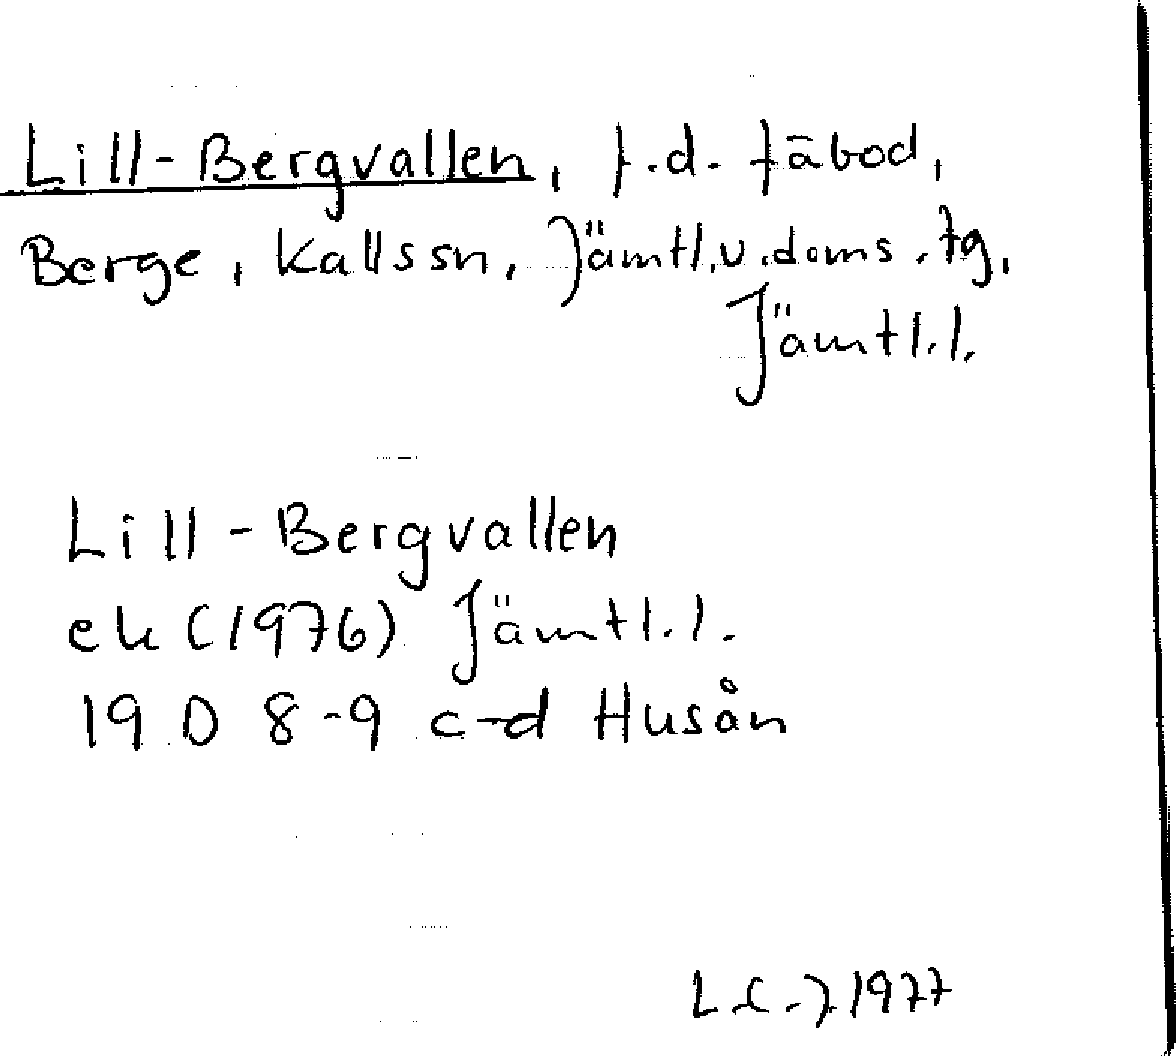 Lill-Bergvallen, f.d. fäbod,
Berge, Kallssn, Jämtl.v.doms.tg,
Jämtl.l.
Lill-Bergvallen
ek (1976) Jämtl.l.
19 D 8-9 c-d Husån
1977